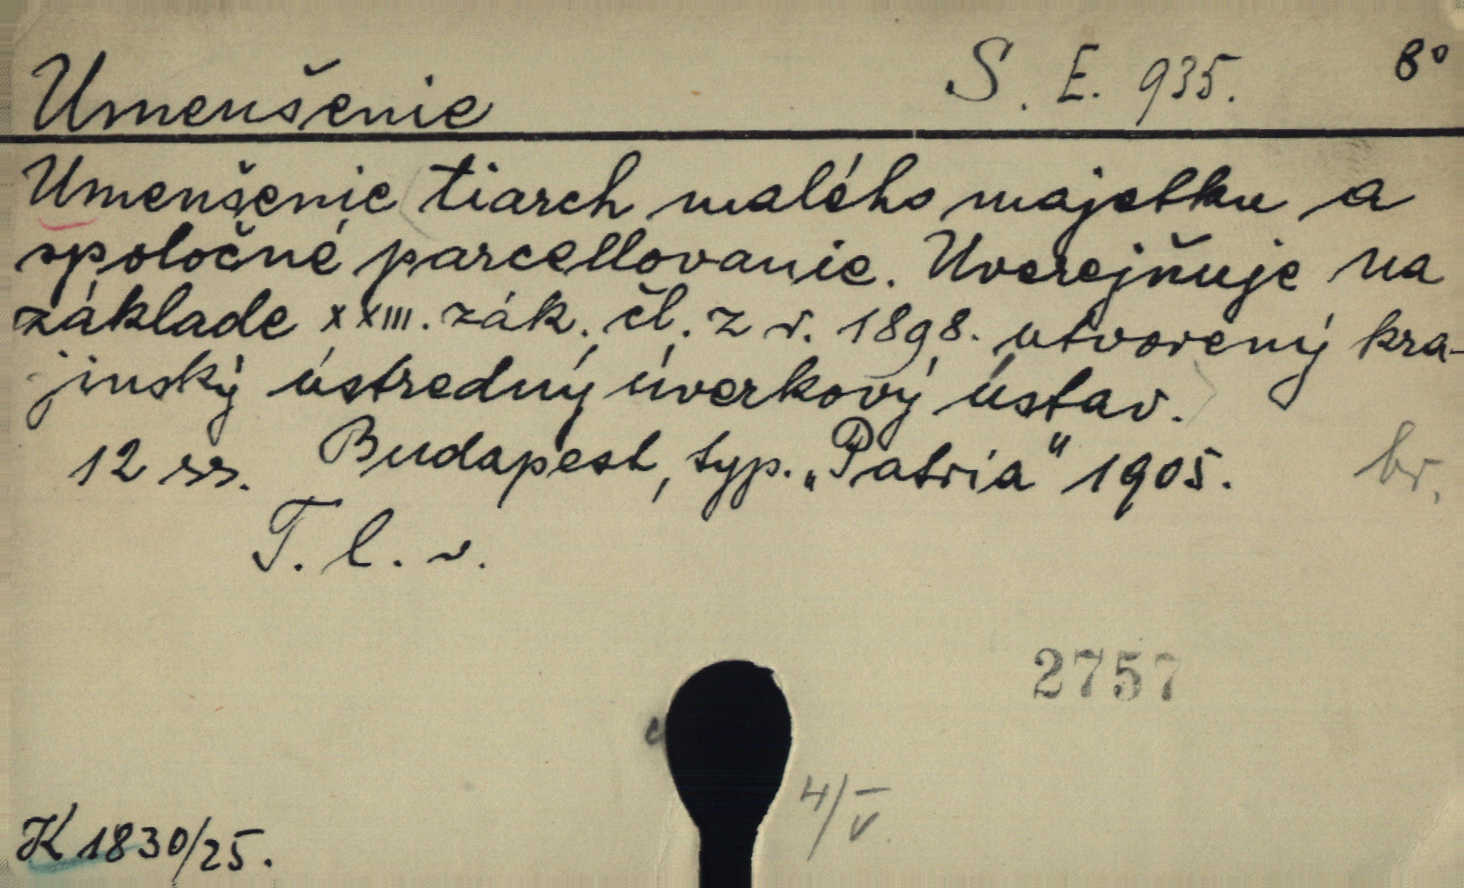 Umenšenie S. E. 935. 8°
Umenšenie tiarch malého majetku a
spoločné parcellovanie. Uverejňuje na
základe XXIII. zák. čl. z r. 1898. utvorený kra-
jinský ústredný úverkový ústav.
12 ss. Budapest, typ. „Patria" 1905. br.
T. l. v.
2757
4/V
K 1830/25.